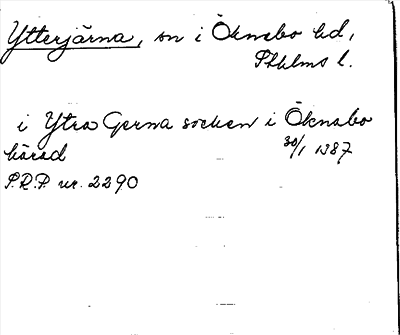 Ytterjärna, sn i Öknebo hd,
Sthlms l.
i Ytra Gerna socken i Öknabo
härad 30/1 1387
S.R.P. nr. 2290